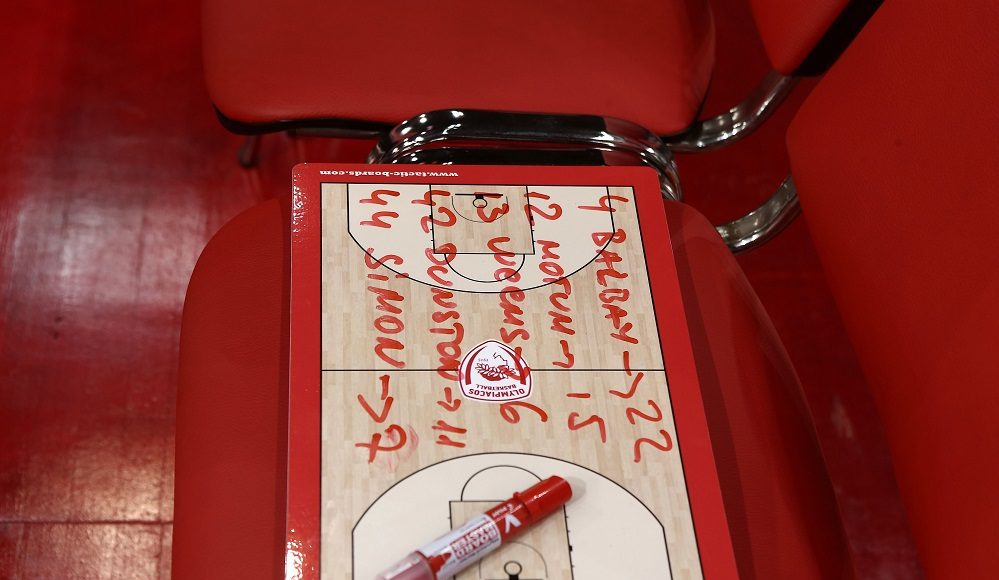 www.tactic-boards.com
4 BALBAY → 22
12 MOTUM → 15
13 WEEMS → 6
42 DUNSTON → 11
44 SIMON → 7
OLYMPIACOS
BASKETBALL
V BOARD
MASTER